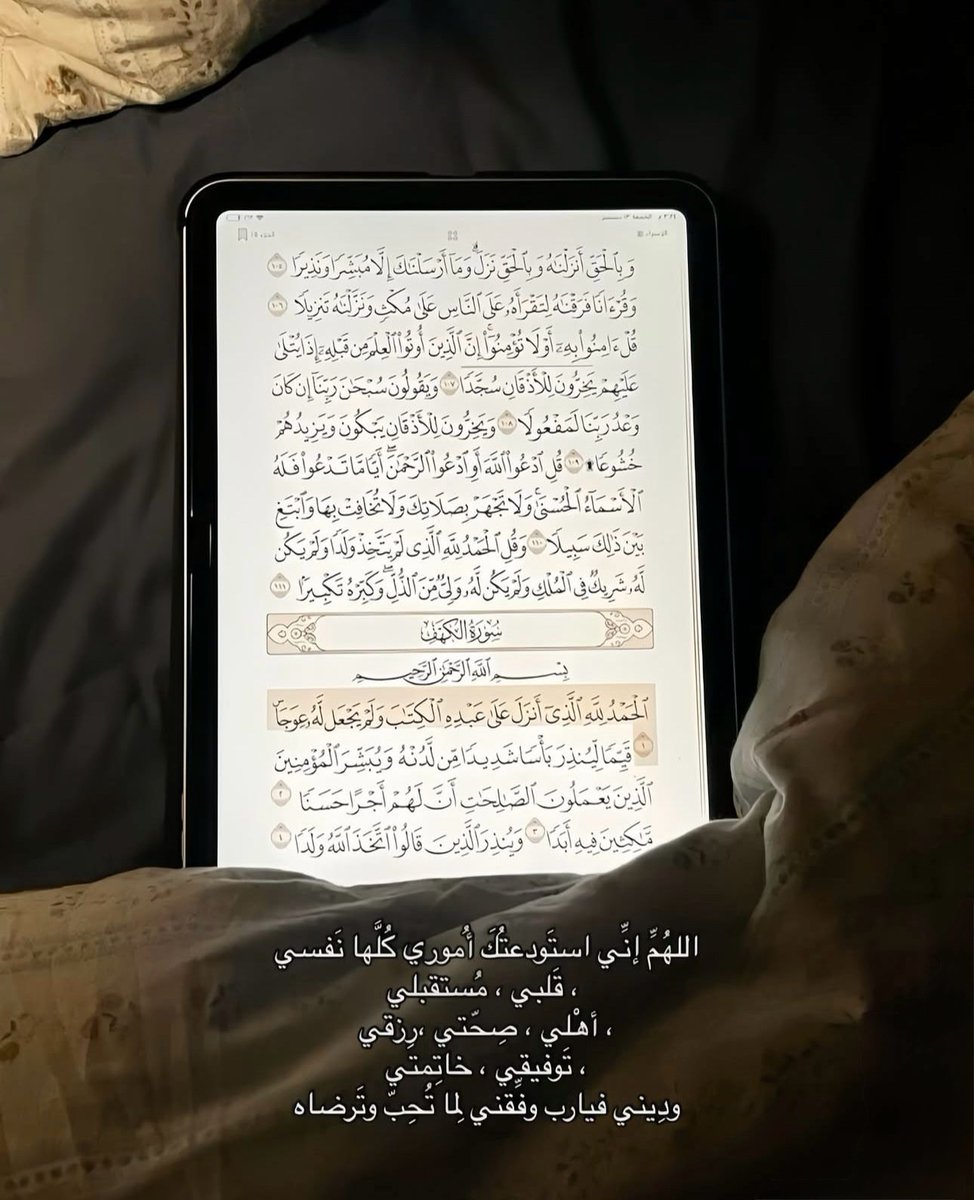 ٣:٢٤ م الخميس ١٢ سبتمبر
الإسراء
الجزء ١٥
وَبِٱلْحَقِّ أَنزَلْنَٰهُ وَبِٱلْحَقِّ نَزَلَ ۗ وَمَآ أَرْسَلْنَٰكَ إِلَّا مُبَشِّرًا وَنَذِيرًا ١٠٥
وَقُرْءَانًا فَرَقْنَٰهُ لِتَقْرَأَهُۥ عَلَى ٱلنَّاسِ عَلَىٰ مُكْثٍ وَنَزَّلْنَٰهُ تَنزِيلًا ١٠٦
قُلْ ءَامِنُوا۟ بِهِۦٓ أَوْ لَا تُؤْمِنُوٓا۟ ۚ إِنَّ ٱلَّذِينَ أُوتُوا۟ ٱلْعِلْمَ مِن قَبْلِهِۦٓ إِذَا يُتْلَىٰ
عَلَيْهِمْ يَخِرُّونَ لِلْأَذْقَانِ سُجَّدًا ١٠٧ وَيَقُولُونَ سُبْحَٰنَ رَبِّنَآ إِن كَانَ
وَعْدُ رَبِّنَا لَمَفْعُولًا ١٠٨ وَيَخِرُّونَ لِلْأَذْقَانِ يَبْكُونَ وَيَزِيدُهُمْ
خُشُوعًا ۩ ١٠٩ قُلِ ٱدْعُوا۟ ٱللَّهَ أَوِ ٱدْعُوا۟ ٱلرَّحْمَٰنَ ۖ أَيًّا مَّا تَدْعُوا۟ فَلَهُ
ٱلْأَسْمَآءُ ٱلْحُسْنَىٰ ۚ وَلَا تَجْهَرْ بِصَلَاتِكَ وَلَا تُخَافِتْ بِهَا وَٱبْتَغِ
بَيْنَ ذَٰلِكَ سَبِيلًا ١١٠ وَقُلِ ٱلْحَمْدُ لِلَّهِ ٱلَّذِى لَمْ يَتَّخِذْ وَلَدًا وَلَمْ يَكُن
لَّهُۥ شَرِيكٌ فِى ٱلْمُلْكِ وَلَمْ يَكُن لَّهُۥ وَلِىٌّ مِّنَ ٱلذُّلِّ ۖ وَكَبِّرْهُ تَكْبِيرًۢا ١١١
سُورَةُ الكَهْفِ
بِسْمِ ٱللَّهِ ٱلرَّحْمَٰنِ ٱلرَّحِيمِ
ٱلْحَمْدُ لِلَّهِ ٱلَّذِىٓ أَنزَلَ عَلَىٰ عَبْدِهِ ٱلْكِتَٰبَ وَلَمْ يَجْعَل لَّهُۥ عِوَجَا ۜ
١ قَيِّمًا لِّيُنذِرَ بَأْسًا شَدِيدًا مِّن لَّدُنْهُ وَيُبَشِّرَ ٱلْمُؤْمِنِينَ
ٱلَّذِينَ يَعْمَلُونَ ٱلصَّٰلِحَٰتِ أَنَّ لَهُمْ أَجْرًا حَسَنًا ٢
مَّٰكِثِينَ فِيهِ أَبَدًا ٣ وَيُنذِرَ ٱلَّذِينَ قَالُوا۟ ٱتَّخَذَ ٱللَّهُ وَلَدًا ٤
اللهُمِّ إنِّي استَودعتُكَ أُموري كُلَّها نَفسي
، قَلبي ، مُستقبلي
، أهْلي ، صِحّتي ،رِزقي
، تَوفيقي ، خاتِمتي
ودِيني فيارب وفِّقني لِما تُحِبّ وتَرضاه